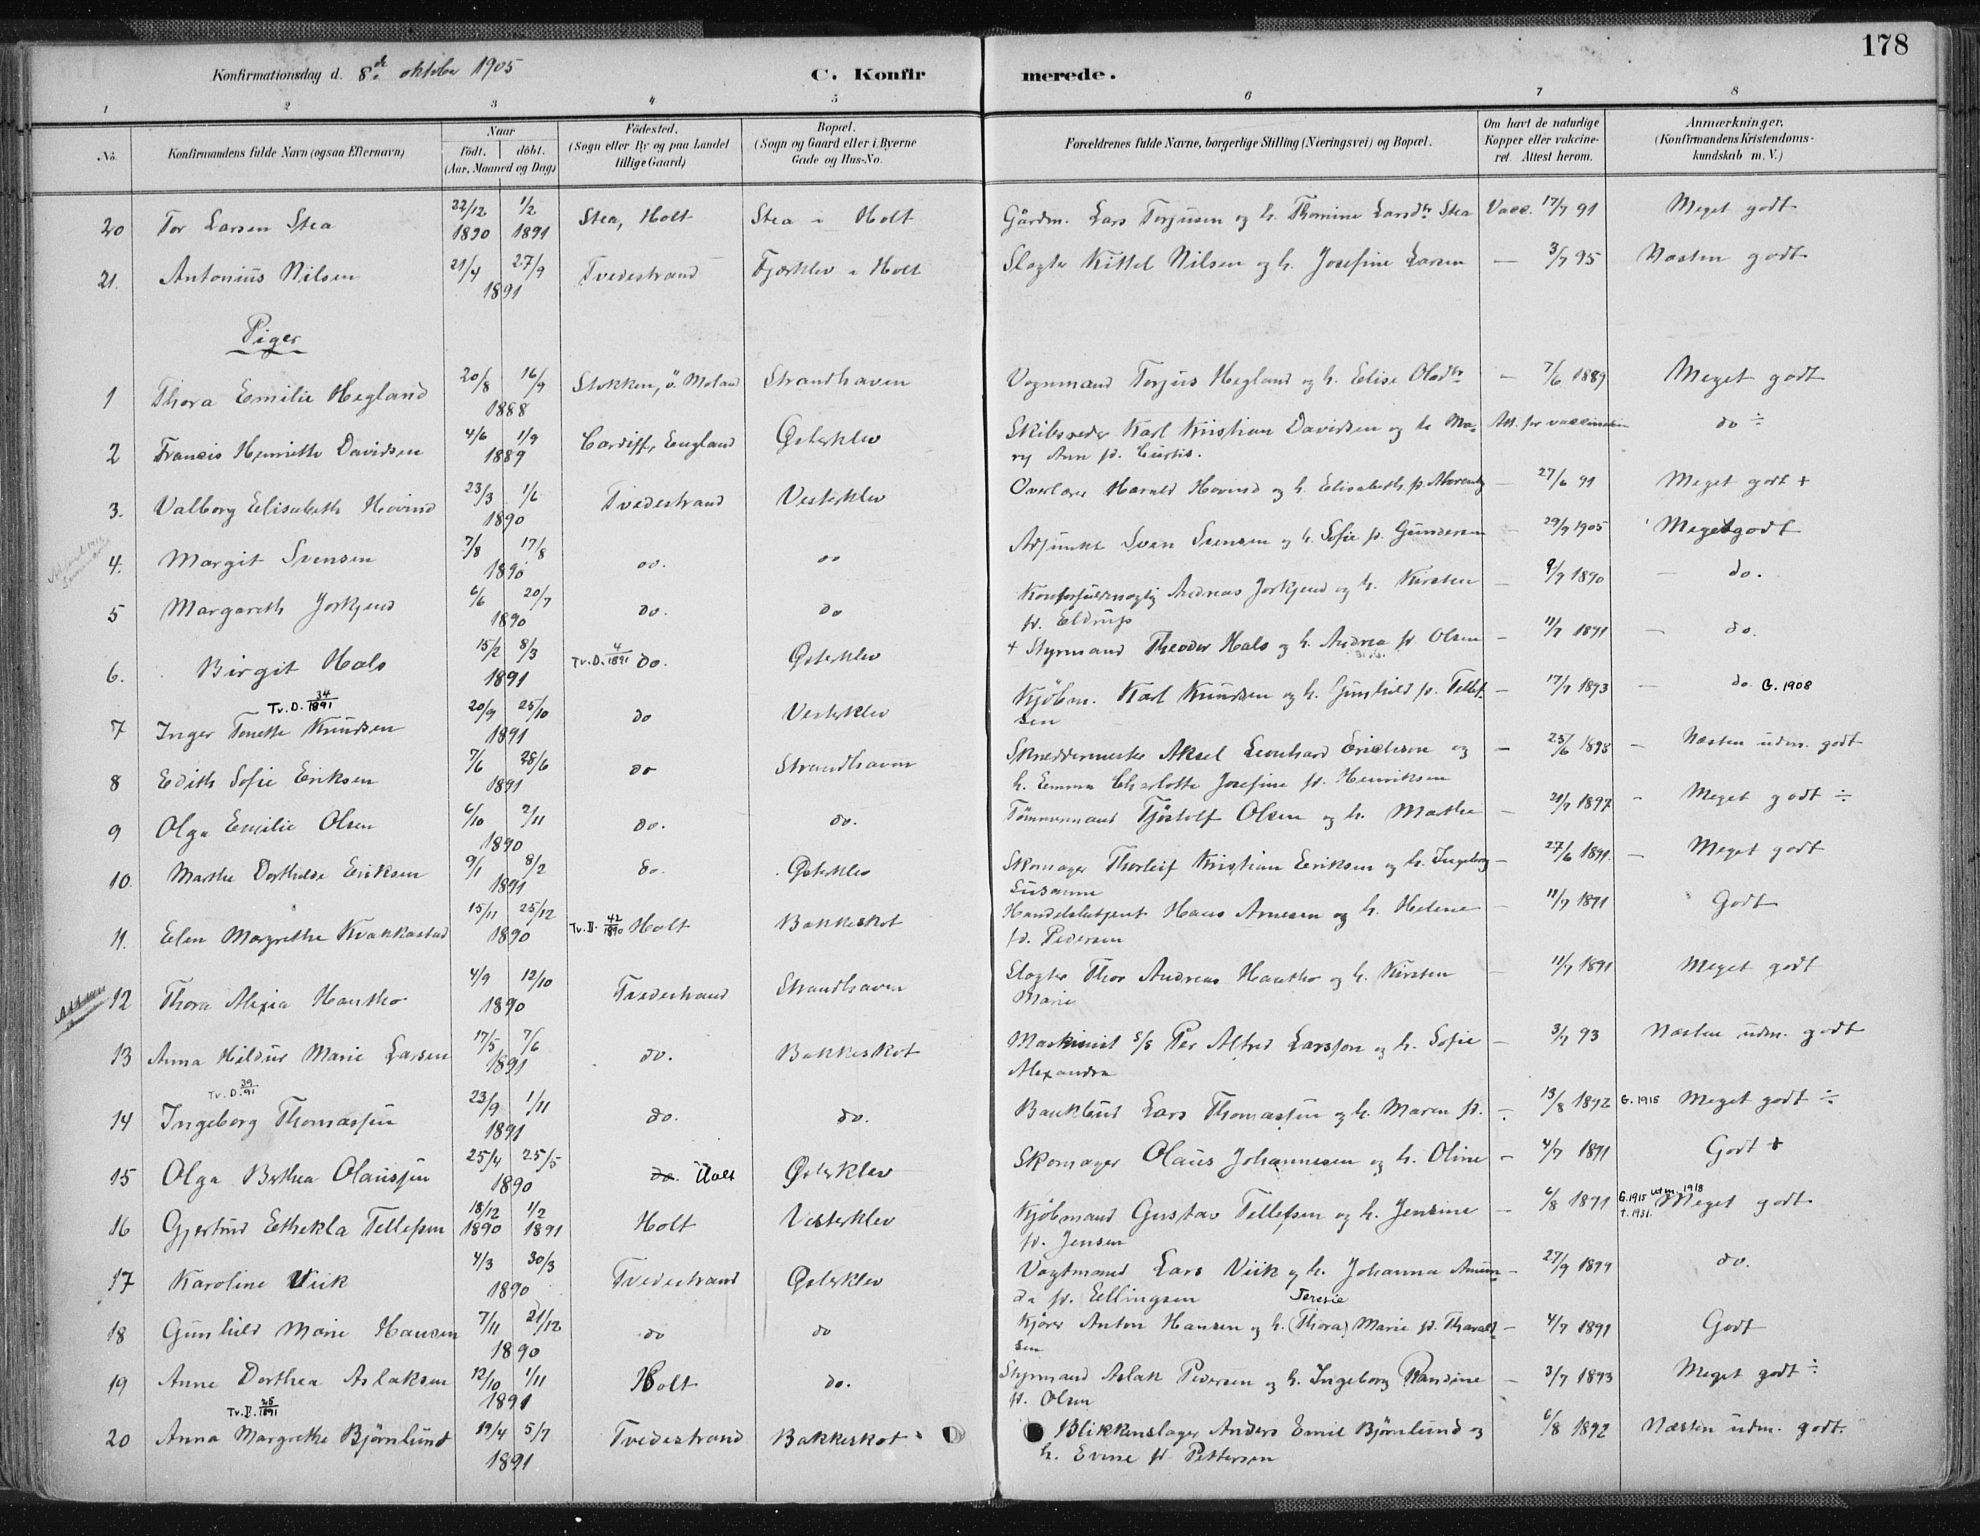 178
Konfirmationsdag d. 8de oktober 1905 C. Konfirmerede.
1 2 3 4 5 6 7 8
No. Konfirmandens fulde Navn (ogsaa Efternavn) Naar födt. döbt. (Aar, Maaned og Dag) Födested. (Sogn eller By og paa Landet tillige Gaard) Bopæl. (Sogn og Gaard eller i Byerne Gade og Hus-No. Forældrenes fulde Navne, borgerlige Stilling (Næringsvei) og Bopæl. Om havt de naturlige Kopper eller vakcineret. Attest herom. Anmærkninger. (Konfirmandens Kristendomskundskab m. V.)
20 Tor Larsen Stea 22/12 1890 1/2 1891 Stea, Holt Stea i Holt Gårdm. Lars Torjusen og h. Thomine Larsdtr Stea Vacc. 17/7 91 Meget godt
21. Antonius Nilsen 21/4 27/9 1891 Tvedestrand Fjærklev i Holt Slagter Kittel Nilsen og h. Josefine Larsen — 3/7 95 Næsten godt
Piger
1 Thora Emilie Hegland 20/8 16/9 1888 Stokken, ö. Moland Strandhaven Vognmand Torjus Hegland og h. Elise Olsdtr — 7/6 1889 Meget godt
2 Francis Henriette Davidsen 4/6 1/9 1889 Cardiff, England Østerklev Skibsreder Karl Kristian Davidsen og h. Mary Ann f. Curtis. Att. for vaccination do ÷
3. Valborg Elisabeth Hovind 23/3 1/6 1890 Tvedestrand Vesterklev Overlærer Harald Hovind og h. Elisabeth f. — 27/6 91 Meget godt +
4. Margit Svensen 7/8 17/8 1890 do. do Adjunkt Sven Svensen og h. Sofie f. Gundersen — 29/9 1905 Meget godt
5 Margareth Jorkjend 6/6 20/7 1890 do. do Andreas Jorkjend og h. Kirsten f. Eldrup — 9/7 1890 — do.
6. Birgit Hals 15/2 8/3 1891 Tv.D. 4/1891 do. Østerklev + Styrmand Theodor Hals og h. Andrea f. Olsen — 11/7 1891 — do.
7 Inger Tonette Knudsen Tv.D. 34/1891 20/9 25/10 1891 do Vesterklev Kjöbm. Karl Knudsen og h. Gunhild f. Tellefsen — 17/7 1893 — do G. 1908
8 Edith Sofie Eriksen 7/6 28/6 1891 do Strandhaven Skreddermester Aksel Leonhard Erichson og h. Emma Charlotte Josefine f. Henriksen — 23/6 1898 — Næsten udm. godt
9 Olga Emilie Olsen 6/10 2/11 1890 do. do. Tömmermand Tjöstolf Olsen og h. Marthe — 21/7 1897 — Meget godt ÷
10. Marthe Dorthilde Eriksen 9/1 8/2 1891 do. Østerklev Skomager Thorleif Kristian Eriksen og h. Ingeborg Susanne — 27/6 1891. — Meget godt
11. Elen Margrethe Kvakkestad 15/11 25/12 1890 Tv.D. 42/1890 Holt Bakkeskot Handelsbetjent Hans Arnesen og h. Helene f. Pedersen — 11/7 1891 Godt
12 Thora Alexia Hantho 4/9 12/10 1890 Tvedestrand Strandhaven Slagter Thor Andreas Hantho og h. Kirsten Marie — 11/7 1891 Meget godt
13 Anna Hildur Marie Larsen 17/5 7/6 1891 do. Bakkeskot Maskinist s/s Per Alfred Larsson og h. Sofie Alexandra — 3/7 93 Næsten udm. godt
14 Ingeborg Thomassen Tv.D. 39/91 23/9 1/11 1891 do. do. Lars Thomassen og h. Maren f. — 13/8 1892 G. 1915 Meget godt ÷
15 Olga Berthea Olaussen 25/4 25/5 1890 do. Holt Østerklev Skomager Olaus Johannesen og h. Oline — 4/7 1891 Godt +
16 Gjertrud Ethekla Tellefsen 18/12 1890 1/2 1891 Holt Vesterklev Kjöbmand Gustav Tellefsen og h. Jensine f. Jensen — 6/8 1891 G. 1915 utm. 1918 t. 1931. Meget godt
17 Karoline Viik 4/3 30/3 1890 Tvedestrand Østerklev Vagtmand Lars Viik og h. Johanna Amunda f. Ellingsen — 27/9 1899 do.
18 Gunhild Marie Hansen 7/11 21/12 1890 do do Kjörer Anton Hansen og h. (Thora) Teresie Marie f. Tharaldsen — 4/7 1891 Godt
19 Anne Dorthea Aslaksen 12/10 1/11 1891 Holt do. Styrmand Aslak Pedersen og h. Ingeborg Randine f. Olsen — 3/7 1893 Meget godt ÷
20 Anna Margrethe Björnlund Tv.D. 25/1891 19/4 5/7 1891 Tvedestrand Bakkeskot Blikkenslager Anders Emil Björnlund og h. Evine f. Pettersen 6/8 1892 Næsten udm. godt.